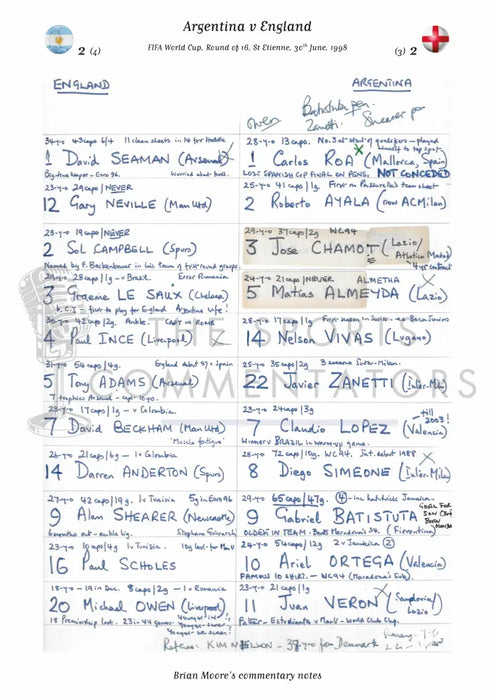 Argentina v England
2 (4)
FIFA World Cup, Round of 16, St Etienne, 30th June, 1998
(3) 2
ENGLAND
ARGENTINA
Owen
Batistuta pen.
Zanetti
Shearer pen
34-y-o 43 caps 6/4 11 clean sheets in 14 for Hoddle
1 David SEAMAN (Arsenal)
Big-time keeper - Euro 96. Worried about ball.
28-y-o 13 caps. No. 3 at start of qualifiers - played
1 Carlos ROA (Mallorca, Spain)
LOST SPANISH CUP FINAL ON PENS. NOT CONCEDED
23-y-o 29 caps/NEVER
12 Gary NEVILLE (Man Utd)
25-y-o 41 caps/1g. First on Passarella's team sheet
2 Roberto AYALA (now AC Milan)
23-y-o 19 caps/NEVER
2 Sol CAMPBELL (Spurs)
Named by F. Beckenbauer in his team of first round groups.
29-y-o 37 caps/2g WC94
3 Jose CHAMOT (Lazio/
Atletico Madrid)
4 yr contract
29-y-o 28 caps/1g - v Brazil. Error Rumania
3 Graeme LE SAUX (Chelsea)
b. C.I. - first to play for England
24-y-o 21 caps/NEVER ALMETHA
5 Matias ALMEYDA (Lazio)
30-y-o 42 caps/2g. Ankle.
4 Paul INCE (Liverpool)
28-y-o 17 caps/1g
14 Nelson VIVAS (Lugano)
31-y-o 54 caps/4g. England debut 87 v Spain
5 Tony ADAMS (Arsenal)
25-y-o 35 caps/2g 3 seasons Inter-Milan.
22 Javier ZANETTI (Inter-Mil)
23-y-o 17 caps/1g - v Colombia.
7 David BECKHAM (Man Utd)
'Muscle fatigue'
23-y-o 24 caps/3g
7 Claudio LOPEZ (Valencia)
till 2003!
Winner v BRAZIL in warm-up game.
26-y-o 21 caps/6g - 1v Colombia
14 Darren ANDERTON (Spurs)
28-y-o 72 caps/10g. WC94. Int. debut 1988
8 Diego SIMEONE (Inter. Milan)
27-y-o 42 caps/19g. 1v Tunisia 5g in Euro 96
9 Alan SHEARER (Newcastle)
6 months out - ankle lig.
29-y-o 65 caps/47g. (4) - inc hat-trick Jamaica.
9 Gabriel BATISTUTA (Fiorentina)
OLDEST IN TEAM - Beats Maradona's 34.
23-y-o 10 caps/4g 1v Tunisia.
16 Paul SCHOLES
24-y-o 54 caps/12g 2 v Jamaica (2)
10 Ariel ORTEGA (Valencia)
FAMOUS 10 SHIRT - WC94 (Maradona's Sub).
18-y-o - 19 in Dec. 8 caps/2g - 1v Rumania
20 Michael OWEN (Liverpool)
18 Premiership last. 23 in 44 games
23-y-o 21 caps/1g
11 Juan VERON (Sampdoria/
Lazio)
Father - Estudiantes v Man U - World Club Chp.
Referee: KIM NIELSON - 37-y-o from Denmark
THE SPORTS
COMMENTATORS
Brian Moore's commentary notes